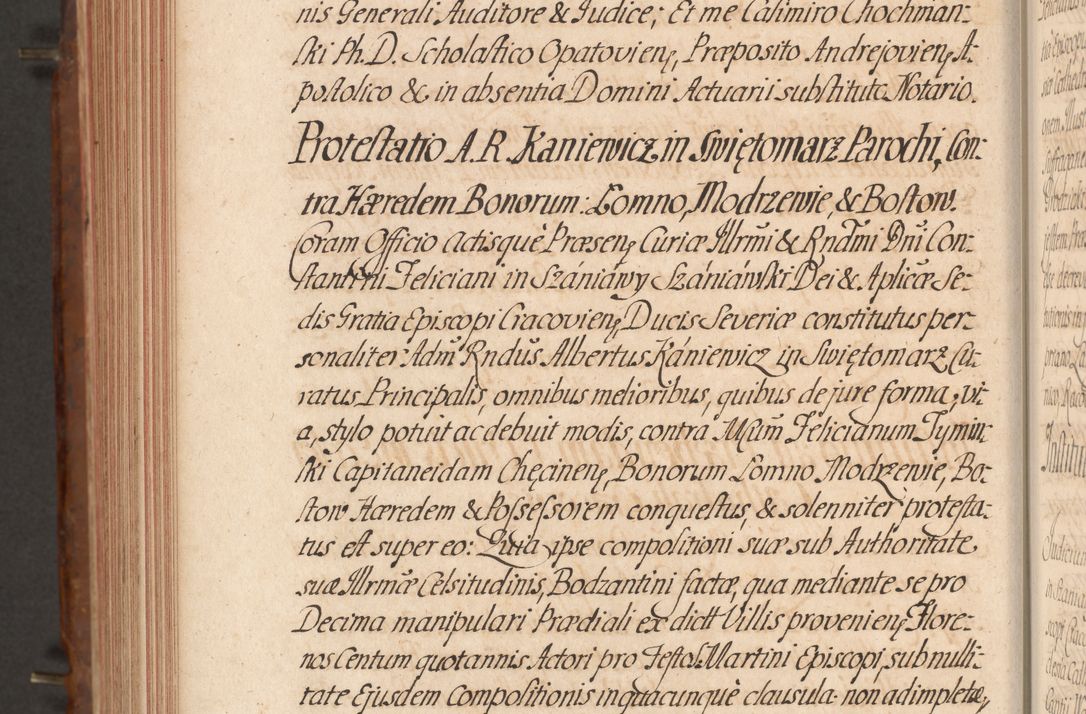 nis Generali Auditore & Judice; Et me Casimiro Chochman:
ski Ph. D. Scholastico Opatovien, Præposito Andrejovien A:
postolico & in absentia Domini Actuarii substituto Notario.
Protestatio A. R. Kaniewicz in Swiętomarz Parochi, Con:
tra Hæredem Bonorum: Łomno, Modrzewie, & Bostow.
Coram Officio Actisquè Præsen Curiæ Illrm̃i & Rndm̃i Dn̄i Con:
stantini Feliciani in Szániáwy Szániáwski Dei & Aplicæ Se:
dis Gratia Episcopi Cracovien, Ducis Severiæ constitutus per:
sonaliter Adm̃ Rndūs Albertus Kániewicz in Swiętomarz Cu:
ratus Principalis, omnibus melioribus, quibus de jure forma, vi:
a, stylo potuit ac debuit modis, contra Mgūm Felicianum Tymin:
ski Capitaneidam Chęcinen, Bonorum Łomno Modrzewie, Bo:
stow Hæredem & Possessorem conquestus, & solenniter protesta:
tus est super eo: Quia ipse compositioni suæ sub Authoritate
suæ Illrmæ Celsitudinis, Bodzantini factæ, qua mediante se pro
Decima manipulari Prædiali ex dictt Villis provenien Flore:
nos Centum quotannis Actori pro Festo S. Martini Episcopi, sub nulli:
tate Ejusdem Compositionis in quacunquè clausula non adimpletæ,